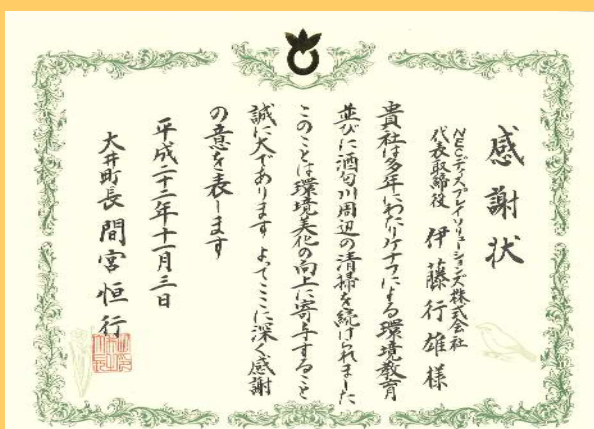 感謝状
NECディスプレイソリューションズ株式会社
代表取締役 伊藤行雄様
貴社は多年にわたりケナフによる環境教育
並びに酒匂川周辺の清掃を続けられました
このことは環境美化の向上に寄与すること
誠に大であります よってここに深く感謝
の意を表します
平成二十二年十一月三日
大井町長 間宮恒行